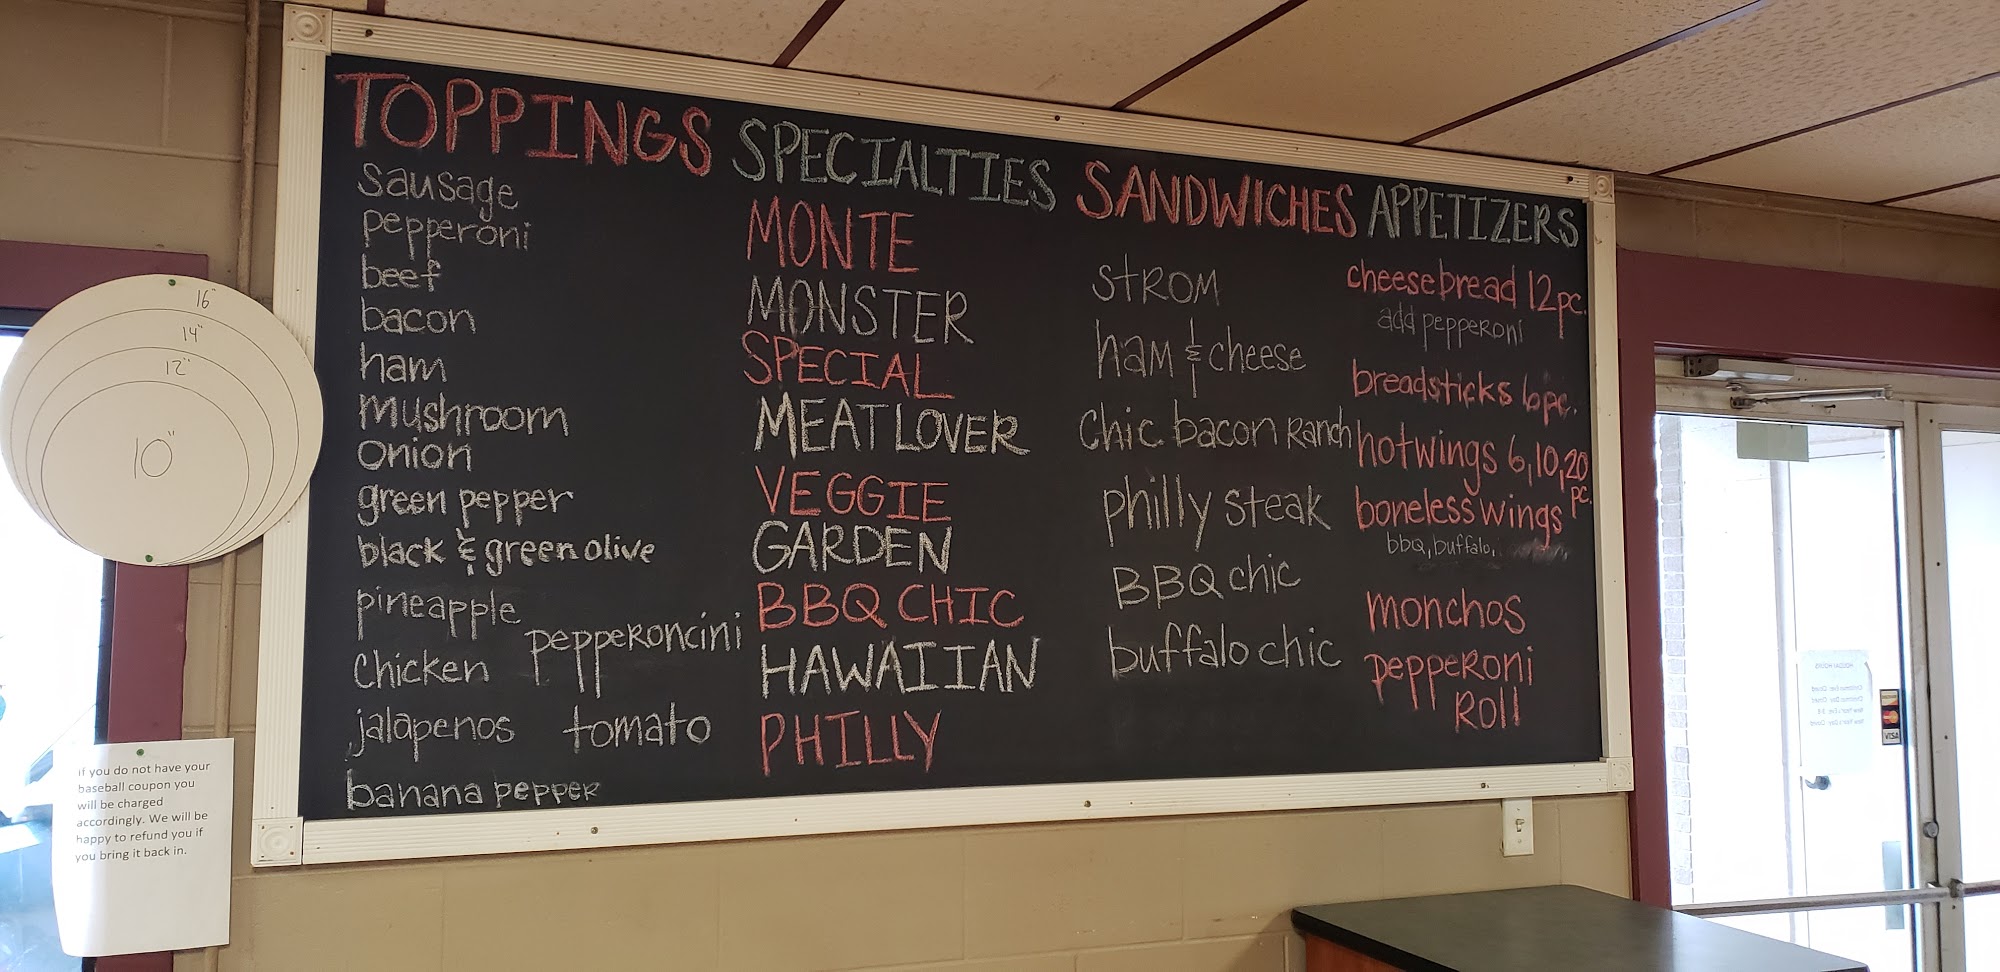 TOPPINGS
sausage
pepperoni
beef
bacon
ham
mushroom
onion
green pepper
black & green olive
pineapple
pepperoncini
chicken
jalapenos
tomato
banana pepper
SPECIALTIES
MONTE
MONSTER
SPECIAL
MEAT LOVER
VEGGIE
GARDEN
BBQ CHIC
HAWAIIAN
PHILLY
SANDWICHES
STROM
ham & cheese
Chic bacon Ranch
philly steak
BBQ chic
buffalo chic
APPETIZERS
cheesebread 12pc.
add pepperoni
breadsticks 6pc.
hotwings 6,10,20
pc.
boneless wings
bbq, buffalo,
monchos
pepperoni
Roll
16"
14"
12"
10"
If you do not have your
baseball coupon you
will be charged
accordingly. We will be
happy to refund you if
you bring it back in.
VISA